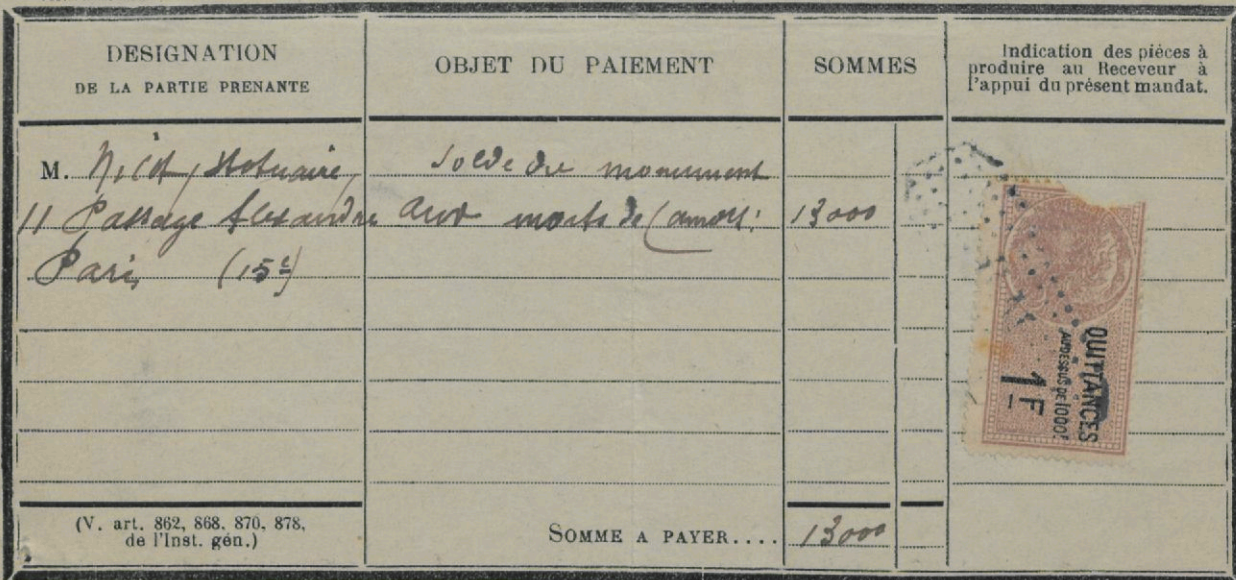 DESIGNATION
DE LA PARTIE PRENANTE
OBJET DU PAIEMENT
SOMMES
Indication des pièces à
produire au Receveur à
l'appui du présent mandat.
M. Statuaire,
11 Passage Alexandre
Paris (15e)
Solde du monument
aux morts de
13000
QUITTANCES
AU DESSUS DE 1000f
1F
(V. art. 862, 868, 870, 878,
de l'Inst. gén.)
SOMME A PAYER....
13000